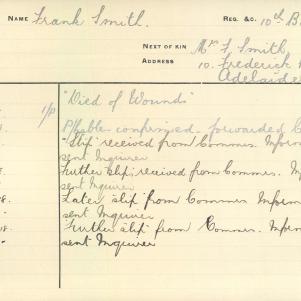 NAME Frank Smith. REG. &C. 10th B
NEXT OF KIN Mr F Smith,
ADDRESS 10. Frederick
Adelaide
1/P "Died of Wounds"
P/Cable confirmed forwarded C
8. "Slip" received from Commrs. Infor
sent Inquirer
Further slip received from Commrs. In
sent Inquirer
8. Later "slip" from Commrs Inform
sent Inquirer
18. Further "slip" from Commrs. Inform
sent Inquirer